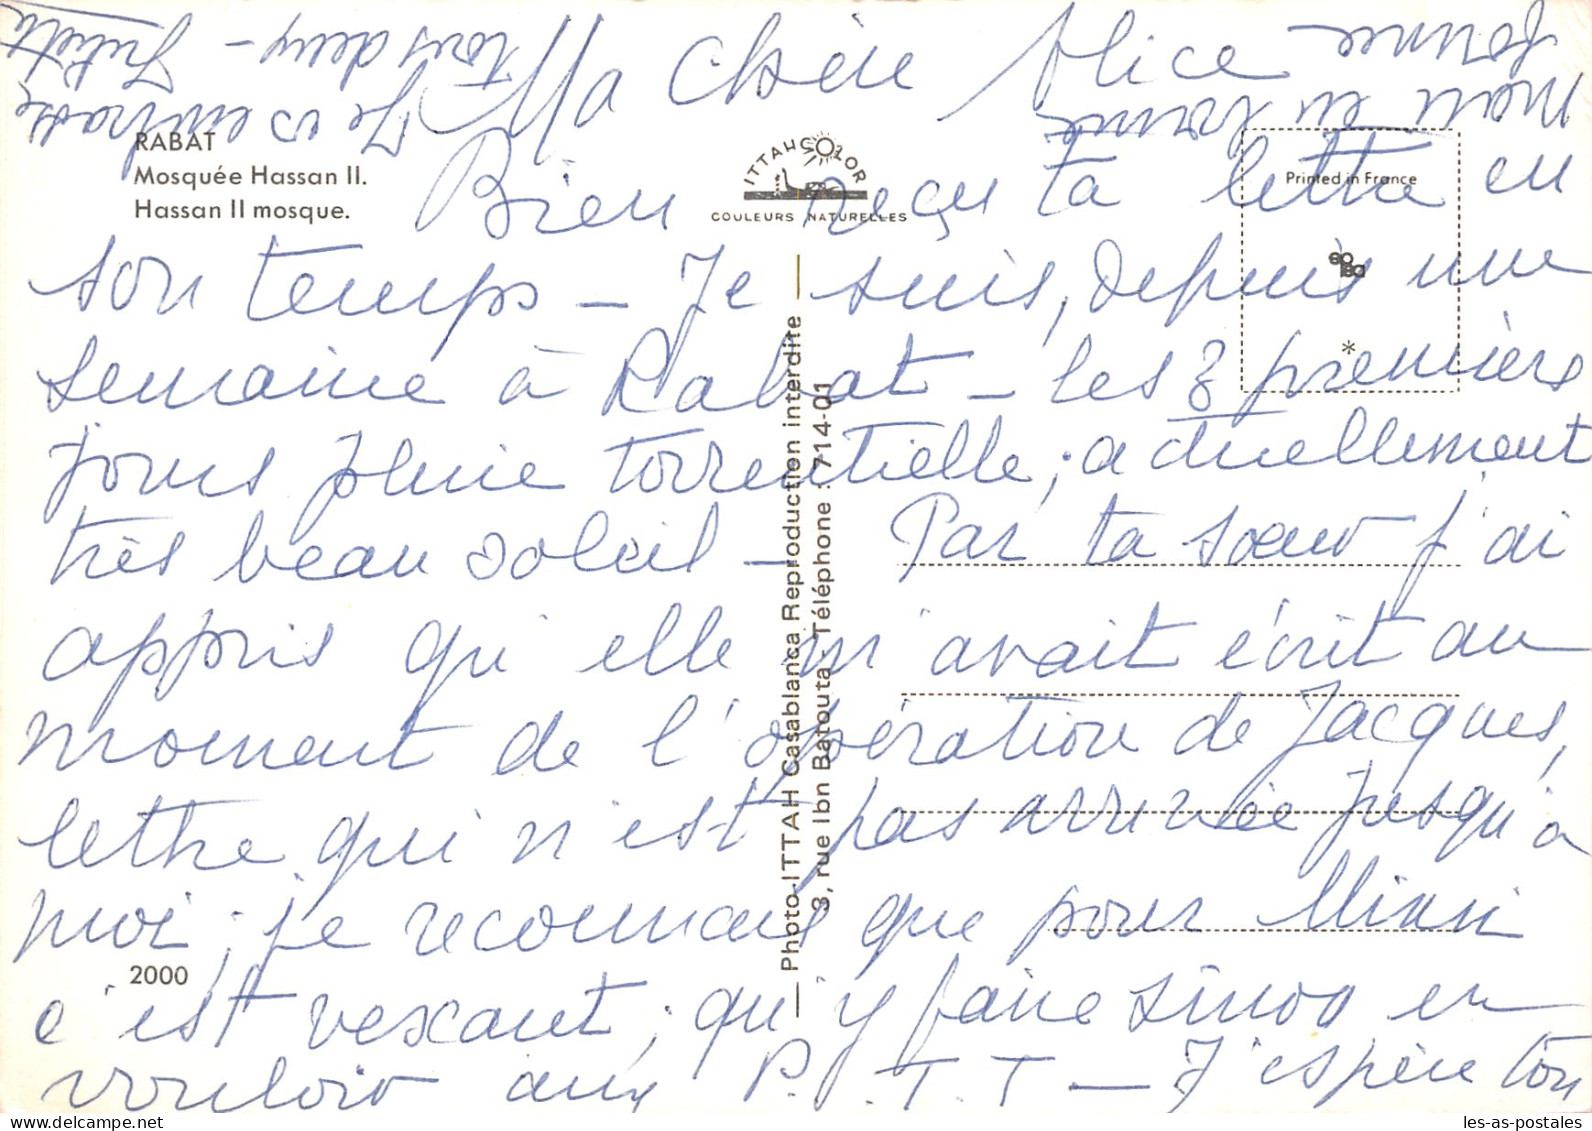 Ma chère Alice
Bien reçu ta lettre en
son temps - Je suis, depuis une
semaine à Rabat - les 3 premiers
jours pluie torrentielle ; actuellement
très beau soleil - Par ta sœur j'ai
appris qu'elle m'avait écrit au
moment de l'opération de Jacques,
lettre qui n'est pas arrivée jusqu'à
moi ; je reconnais que pour Minni
c'est vexant ; qu'y faire sinon en
vouloir aux P.T.T - J'espère ton
mari en bonne
forme
Je vs embrasse
tous deux -
RABAT
Mosquée Hassan II.
Hassan II mosque.
ITTAHCOLOR
COULEURS NATURELLES
Printed in France
*
— Photo-ITTAH Casablanca Reproduction interdite —
3, rue Ibn Batouta - Téléphone : 714-01
2000
les-as-postales.com